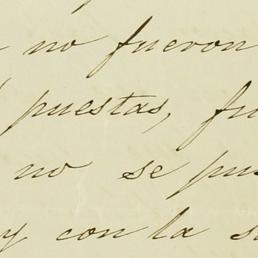 no fueron
puestas, fu
no se pus
y con la s